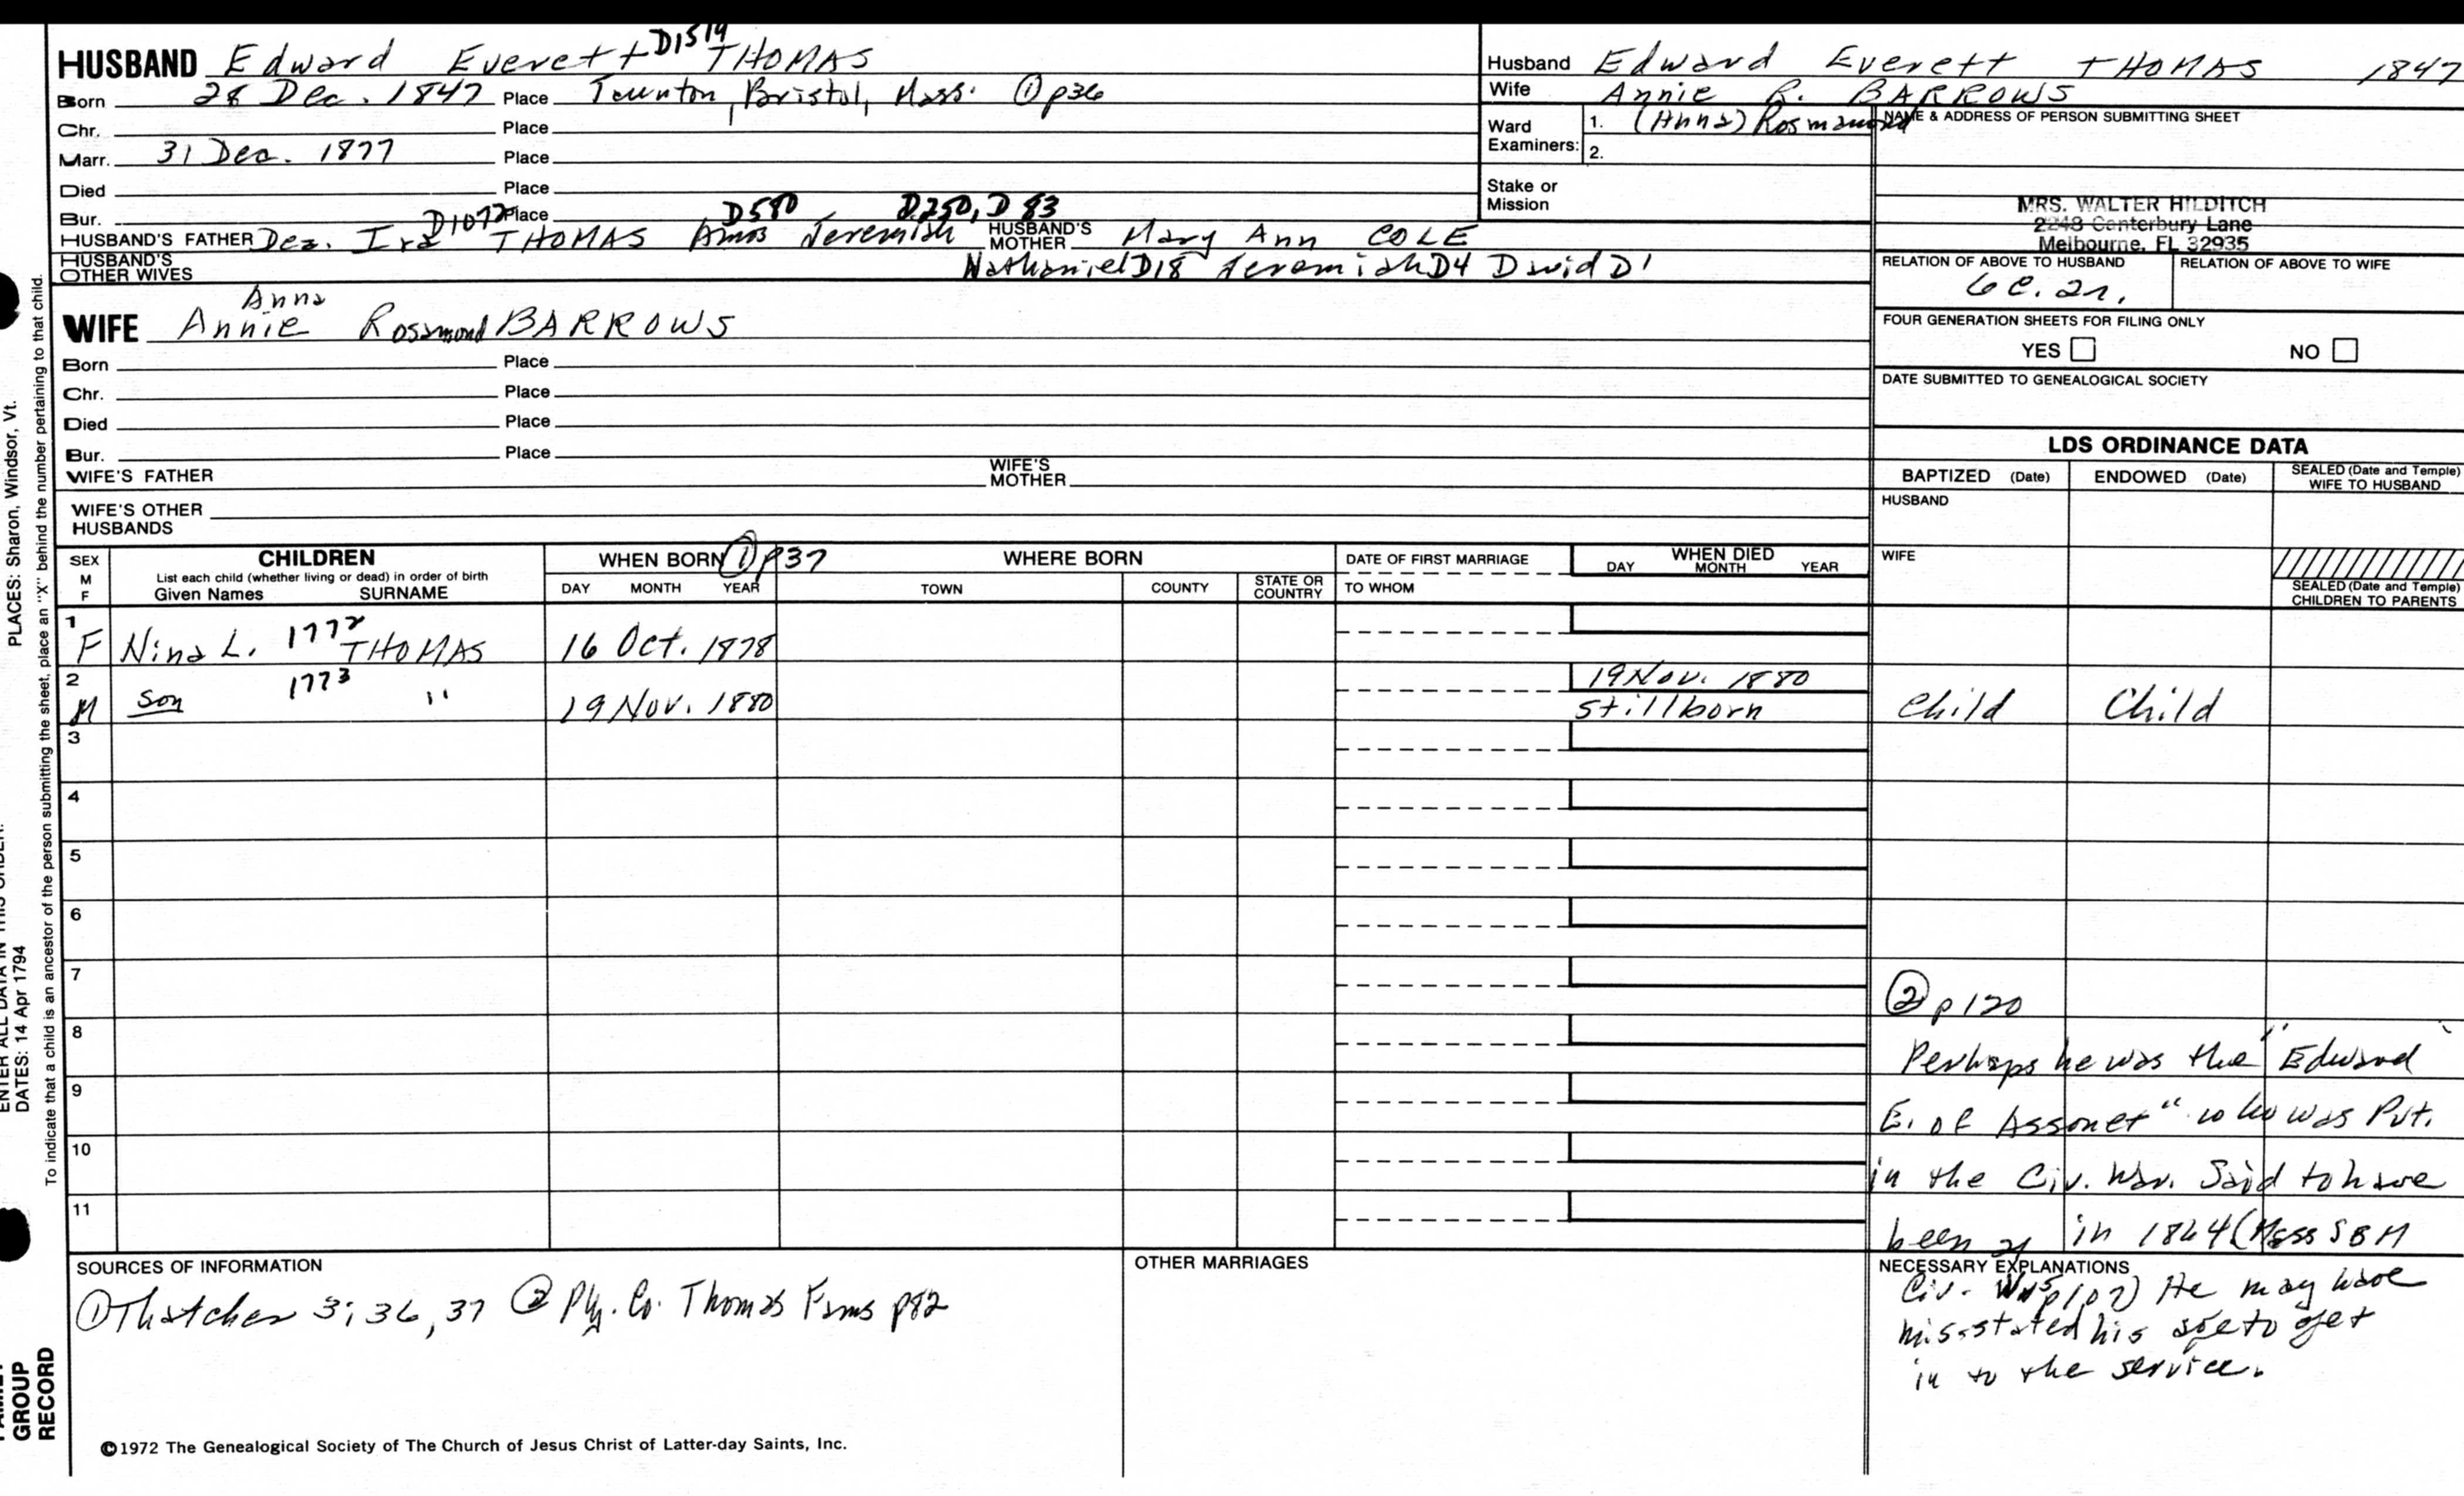 HUSBAND Edward Everett D1514 THOMAS
Born 28 Dec. 1847 Place Taunton, Bristol, Mass. ① p36
Chr. Place
Marr. 31 Dec. 1877 Place
Died Place
Bur. Place
D1072 D580 D250, D83
HUSBAND'S FATHER Dea. Ira THOMAS Amos Jeremiah HUSBAND'S MOTHER Mary Ann COLE
HUSBAND'S OTHER WIVES Nathaniel D18 Jeremiah D4 David D1
Anna
WIFE Annie Rosamond BARROWS
Born Place
Chr. Place
Died Place
Bur. Place
WIFE'S FATHER WIFE'S MOTHER
WIFE'S OTHER HUSBANDS
Husband Edward Everett THOMAS 1847
Wife Annie R. BARROWS
Ward Examiners: 1. (Anna) Rosmamond
2.
Stake or Mission
NAME & ADDRESS OF PERSON SUBMITTING SHEET
MRS. WALTER HILDITCH
2248 Canterbury Lane
Melbourne, FL 32935
RELATION OF ABOVE TO HUSBAND RELATION OF ABOVE TO WIFE
6c.
FOUR GENERATION SHEETS FOR FILING ONLY
YES NO
DATE SUBMITTED TO GENEALOGICAL SOCIETY
LDS ORDINANCE DATA
BAPTIZED (Date) ENDOWED (Date) SEALED (Date and Temple) WIFE TO HUSBAND
HUSBAND
WIFE
SEALED (Date and Temple) CHILDREN TO PARENTS
SEX M F CHILDREN WHEN BORN ① p37 WHERE BORN DATE OF FIRST MARRIAGE WHEN DIED
List each child (whether living or dead) in order of birth
Given Names SURNAME DAY MONTH YEAR TOWN COUNTY STATE OR COUNTRY TO WHOM DAY MONTH YEAR
1 F Nina L. 1772 THOMAS 16 Oct. 1878
2 M son 1773 " 19 Nov. 1880 19 Nov. 1880 stillborn Child Child
3
4
5
6
7
8
9
10
11
② p120
Perhaps he was the "Edward
E. of Assonet" who was Pvt.
in the Civ. War. Said to have
been 21 in 1864 (Mass S & M
NECESSARY EXPLANATIONS
Civ. He may have
mis-stated his age to get
in to the service.
SOURCES OF INFORMATION
① Thatcher 3; 36, 37 ② Ply. Co. Thomas Fams p82
OTHER MARRIAGES
©1972 The Genealogical Society of The Church of Jesus Christ of Latter-day Saints, Inc.
PLACES: Sharon, Windsor, Vt.
DATES: 14 Apr 1794
To indicate that a child is an ancestor of the person submitting the sheet, place an "X" behind the number pertaining to that child.
GROUP
RECORD